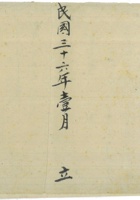 民國三十六年壹月 立